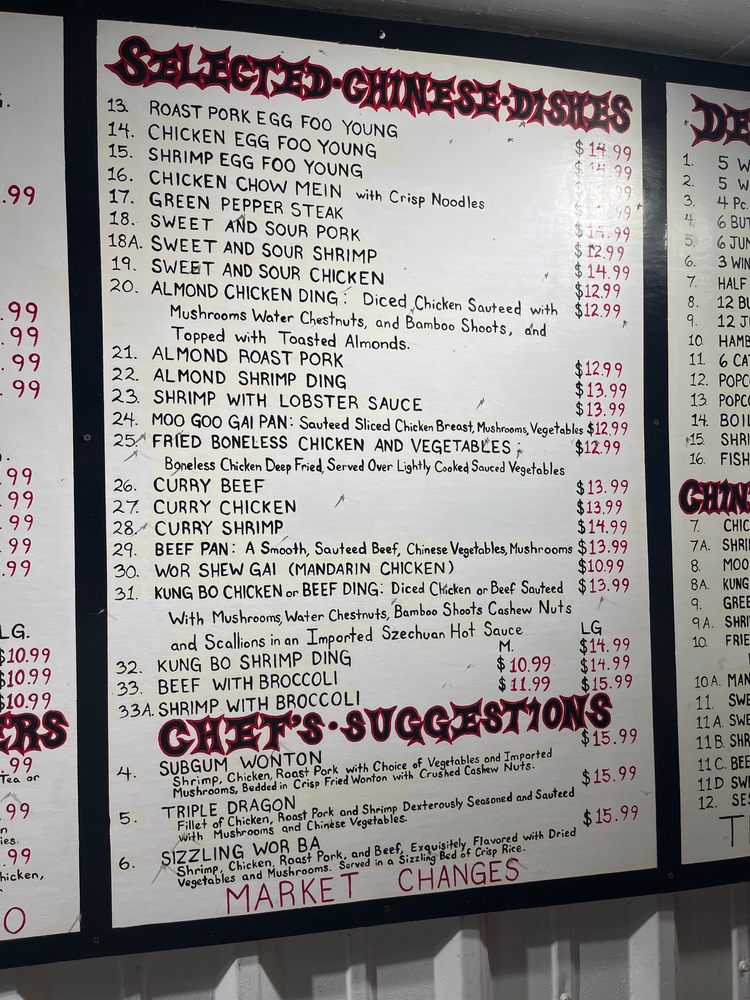 .99
.99
.99
.99
.99
.99
.99
.99
.99
.99
LG.
$10.99
$10.99
$10.99
ERS
.99
Tea or
.99
.99
hicken,
O
SELECTED·CHINESE·DISHES
13. ROAST PORK EGG FOO YOUNG $14.99
14. CHICKEN EGG FOO YOUNG $14.99
15. SHRIMP EGG FOO YOUNG
16. CHICKEN CHOW MEIN with Crisp Noodles
17. GREEN PEPPER STEAK $14.99
18. SWEET AND SOUR PORK $12.99
18A. SWEET AND SOUR SHRIMP $14.99
19. SWEET AND SOUR CHICKEN $12.99
20. ALMOND CHICKEN DING: Diced Chicken Sauteed with $12.99
Mushrooms Water Chestnuts, and Bamboo Shoots, and
Topped with Toasted Almonds.
21. ALMOND ROAST PORK $12.99
22. ALMOND SHRIMP DING $13.99
23. SHRIMP WITH LOBSTER SAUCE $13.99
24. MOO GOO GAI PAN: Sauteed Sliced Chicken Breast, Mushrooms, Vegetables $12.99
25. FRIED BONELESS CHICKEN AND VEGETABLES: $12.99
Boneless Chicken Deep Fried, Served Over Lightly Cooked Sauced Vegetables
26. CURRY BEEF $13.99
27. CURRY CHICKEN $13.99
28. CURRY SHRIMP $14.99
29. BEEF PAN: A Smooth, Sauteed Beef, Chinese Vegetables, Mushrooms $13.99
30. WOR SHEW GAI (MANDARIN CHICKEN) $10.99
31. KUNG BO CHICKEN or BEEF DING: Diced Chicken or Beef Sauteed $13.99
With Mushrooms, Water Chestnuts, Bamboo Shoots Cashew Nuts
and Scallions in an Imported Szechuan Hot Sauce
M. LG
32. KUNG BO SHRIMP DING $14.99
33. BEEF WITH BROCCOLI $10.99 $14.99
33A. SHRIMP WITH BROCCOLI $11.99 $15.99
CHEF'S·SUGGESTIONS
4. SUBGUM WONTON $15.99
Shrimp, Chicken, Roast Pork with Choice of Vegetables and Imported
Mushrooms, Bedded in Crisp Fried Wonton with Crushed Cashew Nuts.
5. TRIPLE DRAGON $15.99
Fillet of Chicken, Roast Pork and Shrimp Dexterously Seasoned and Sauteed
with Mushrooms and Chinese Vegetables.
6. SIZZLING WOR BA $15.99
Shrimp, Chicken, Roast Pork, and Beef, Exquisitely Flavored with Dried
Vegetables and Mushrooms. Served in a Sizzling Bed of Crisp Rice.
MARKET CHANGES
DE
1. 5 W
2. 5 W
3. 4 Pc.
4. 6 BUT
5. 6 JUM
6. 3 WIN
7. HALF
8. 12 BU
9. 12 JU
10. HAMB
11. 6 CA
12. POPC
13 POPCO
14. BOIL
15. SHRI
16. FISH
CHIN
7. CHIC
7A. SHRI
8. MOO
8A. KUNG
9. GREE
9A. SHRI
10. FRIE
10A. MAN
11. SWE
11A. SWE
11B. SHR
11C. BEE
11D SWE
12. SES
T